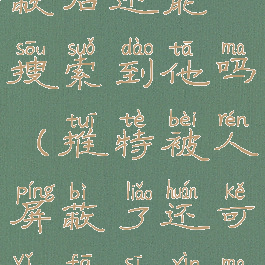 蔽后还能
sōu suǒ dào tā ma
搜索到他吗
tuī tè bèi rén
（推特被人
píng bì liǎo huán kě
屏蔽了还可
yǐ fā sī xìn ma